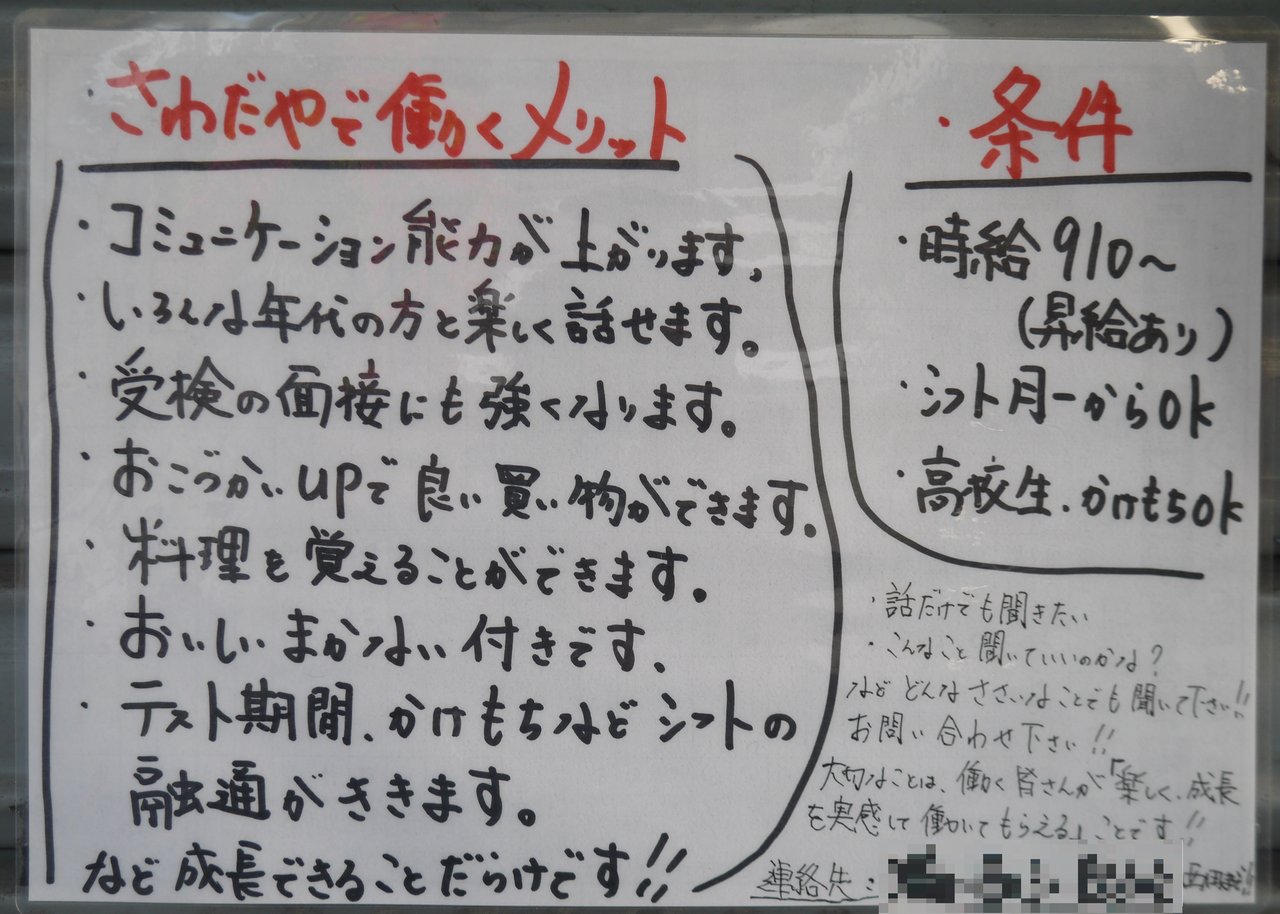 さわだやで働くメリット
・コミュニケーション能力が上がります。
・いろんな年代の方と楽しく話せます。
・受検の面接にも強くなります。
・おこづかいupで良い買い物ができます。
・料理を覚えることができます。
・おいしいまかない付きです。
・テスト期間、かけもちなどシフトの
融通がききます。
など成長できることだらけです!!
・条件
・時給910～
(昇給あり)
・シフト月一からOk
・高校生、かけもちOk
・話だけでも聞きたい
・こんなこと聞いていいのかな?
などどんなささいなことでも聞いて下さい!!
お問い合わせ下さい!!
大切なことは、働く皆さんが「楽しく、成長
を実感して働いてもらえる」ことです!!
連絡先: